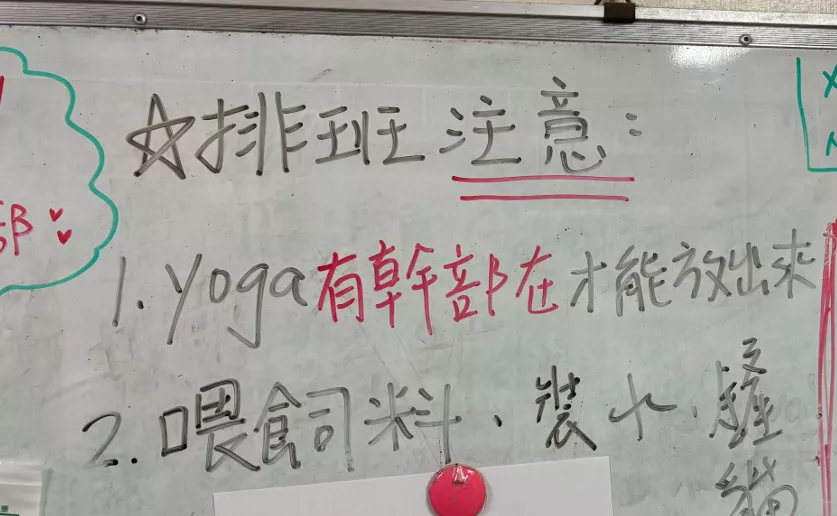 ☆排班注意：
1. yoga有幹部在才能放出來
2. 喂飼料、裝水、鏟貓
部